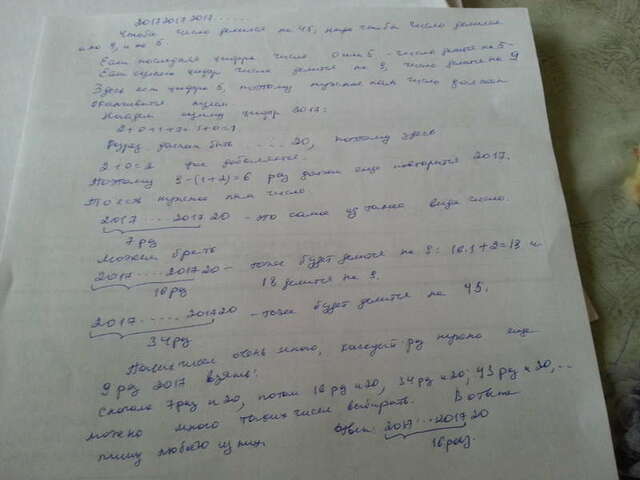 2017 2017 2017 ......
Чтобы число делился на 45, надо чтобы число делился
и по 9, и по 5.
Если последняя цифра числа 0 или 5 - число делится на 5-
Если сумма цифр числа делится на 9, число делится на 9
Здесь нет цифры 5, поэтому нужное нам число должен
оканчиватся нулем
Найдем сумму цифр 2017:
2+0+1+7=1+0=1
должен быть ......20, поэтому здесь
2+0=2 добавляется.
Поэтому 9-(1+2)=6 раз должен еще повторится 2017.
То есть нужное нам число.
2017...2017 20 - это самое из такого вида число.
7 раз
Можем брать
2017.....2017 20 - тоже будет делится на 9: 16.1+2=18 и
16 раз 18 делится на 9.
2017......2017 20 - тоже будет делится на 45.
34 раз
Таких чисел очень много, каждый раз нужно еще
9 раз 2017 взять:
Сначала 7 раз и 20, потом 16 раз и 20, 34 раз и 20; 43 раз и 20,...
можно много таких чисел выбирать. В ответе
пишу любого из них. Ответ: 2017...2017 20
16 раз.